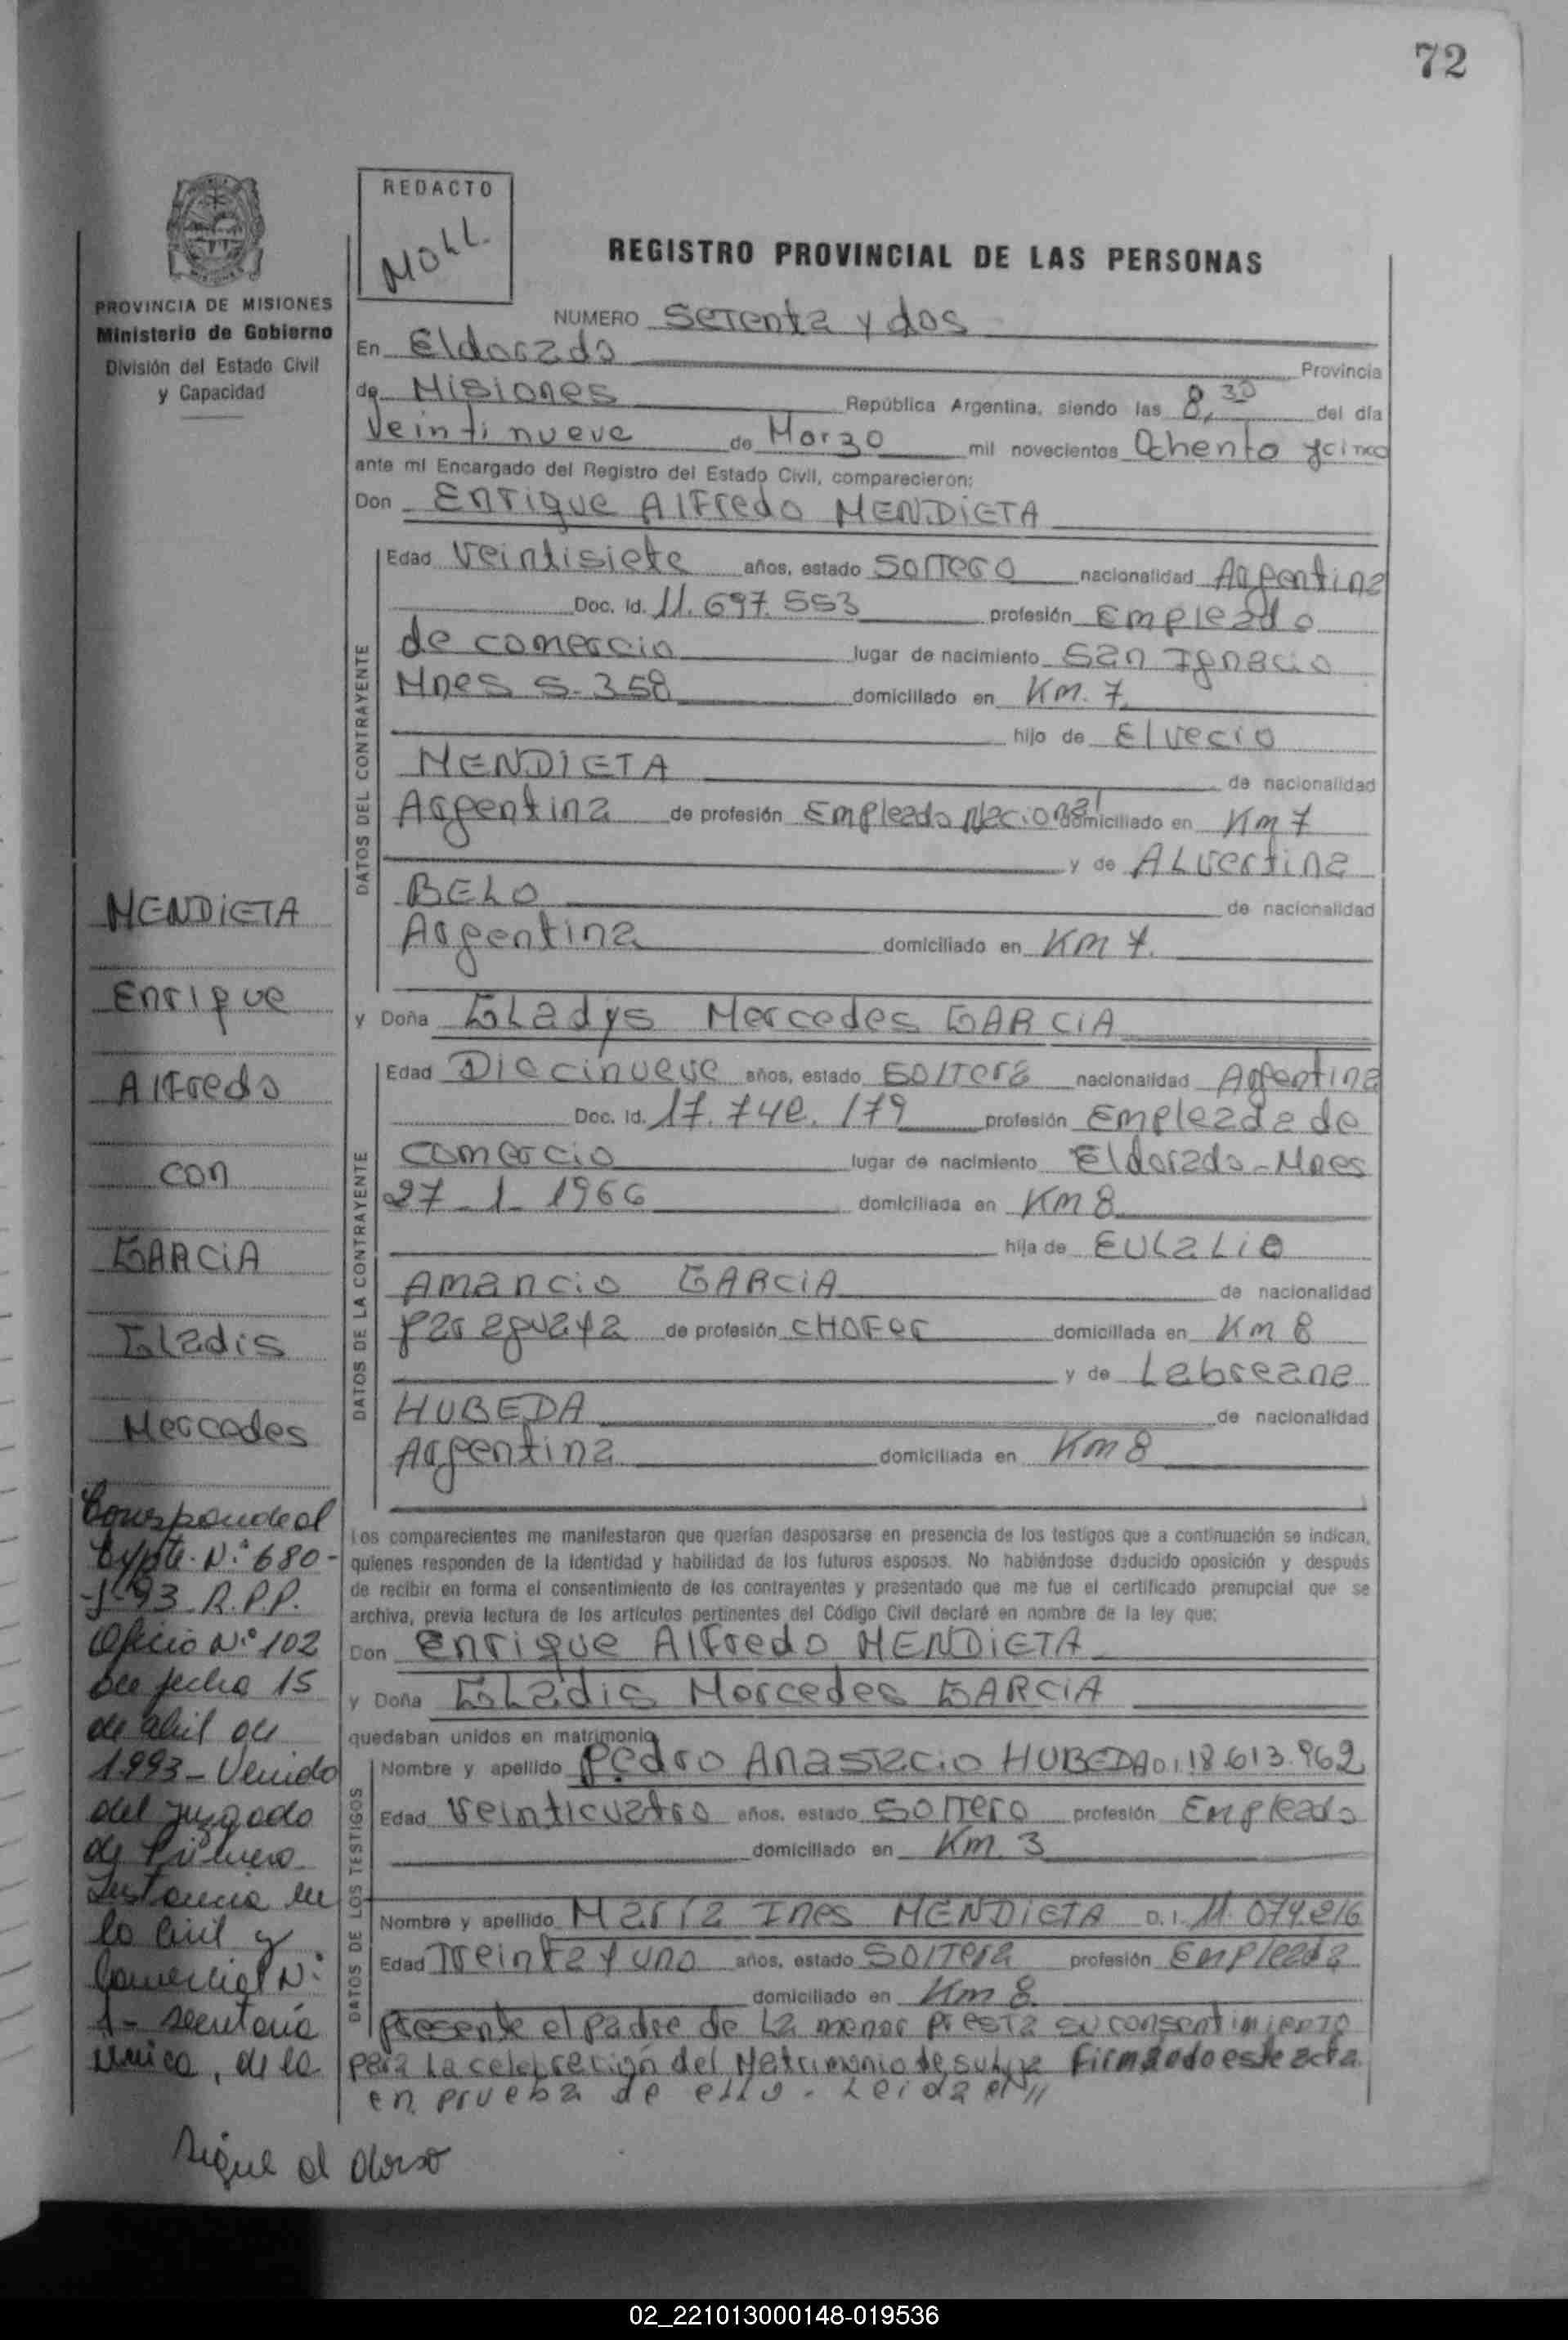 72
REDACTO
MOLL
REGISTRO PROVINCIAL DE LAS PERSONAS
PROVINCIA DE MISIONES
Ministerio de Gobierno
División del Estado Civil
y Capacidad
NUMERO Setenta y dos
En Eldorado Provincia
de Misiones República Argentina, siendo las 8,30 del día
Veintinueve de Marzo mil novecientos Ochenta y cinco
ante mi Encargado del Registro del Estado Civil, comparecieron:
Don Enrique Alfredo MENDIETA
DATOS DEL CONTRAYENTE
Edad Veintisiete años, estado Soltero nacionalidad Argentina
Doc. Id. 11.697.553 profesión Empleado
de comercio lugar de nacimiento San Ignacio
Mnes 5-358 domiciliado en Km. 7
hijo de Elvecio
MENDIETA de nacionalidad
Argentina de profesión Empleado Nacional domiciliado en Km 7
y de ALvertina
BELO de nacionalidad
Argentina domiciliado en Km 7.
y Doña GLadys Mercedes GARCIA
DATOS DE LA CONTRAYENTE
Edad Diecinueve años, estado Soltera nacionalidad Argentina
Doc. Id. 17.742.179 profesión Empleada de
comercio lugar de nacimiento Eldorado-Mnes
27-1-1966 domiciliada en Km 8
hija de EULaLio
Amancio GARCIA de nacionalidad
paraguaya de profesión CHOFER domiciliada en Km 8
y de Labreana
HUBEDA de nacionalidad
Argentina domiciliada en Km 8
MENDIETA
Enrique
Alfredo
con
GARCIA
GLadis
Mercedes
Corresponde al
Expte. N.º 680-
93 R.P.P.
Oficio N.º 102
de fecha 15
de abril de
1993 - Venido
del juzgado
de Primera
Instancia en
lo Civil y
Comercial N.º
1 - Secretaría
Unica, de la
Sigue al dorso
Los comparecientes me manifestaron que querían desposarse en presencia de los testigos que a continuación se indican,
quienes responden de la identidad y habilidad de los futuros esposos. No habiéndose deducido oposición y después
de recibir en forma el consentimiento de los contrayentes y presentado que me fue el certificado prenupcial que se
archiva, previa lectura de los artículos pertinentes del Código Civil declaré en nombre de la ley que:
Don Enrique Alfredo MENDIETA
y Doña GLadis Mercedes GARCIA
quedaban unidos en matrimonio
DATOS DE LOS TESTIGOS
Nombre y apellido Pedro Anastacio HUBEDA D.I. 18.613.962
Edad Veinticuatro años, estado Soltero profesión Empleado
domiciliado en Km. 3
Nombre y apellido María Ines MENDIETA D.I. 11.074.216
Edad Treinta y uno años, estado Soltera profesión Empleada
domiciliado en Km 8
Presente el padre de La menor presta su consentimiento
para La celebración del Matrimonio de su hija Firmando este acta
en prueba de ello. Leida el //
02_221013000148-019536